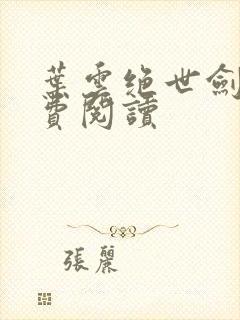 葉雲絶世劍
費閱讀
張麗